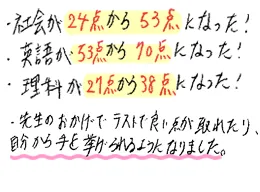 ・社会が24点から53点になった!
・英語が53点から70点になった!
・理科が27点から38点になった!
・先生のおかげでテストで良い点が取れたり、
自分から手を挙げられるようになりました。